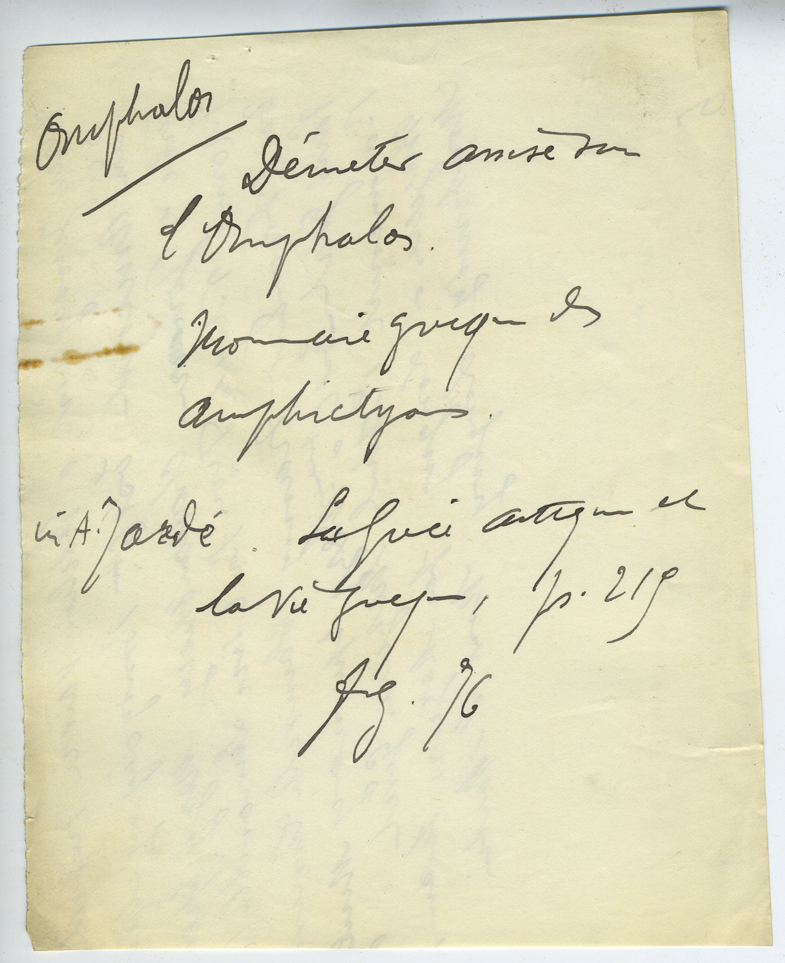 Omphalos
Démeter assise sur
l'Omphalos.
Monnaie grecque des
amphictyons.
in A. Jardé. La Grèce antique et
la vie grecque, p. 219
fig. 76